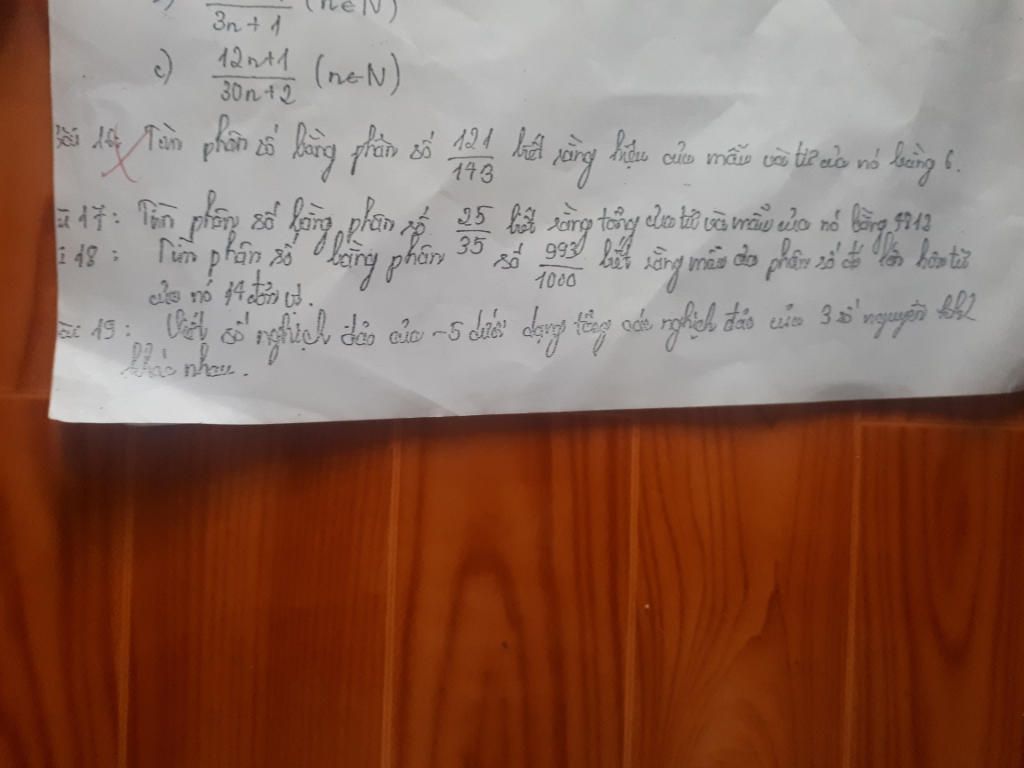 3n + 1 (n∈N)
c) 12n+1 / 30n+2 (n∈N)
Tìm phân số bằng phân số 121/143 biết rằng hiệu của mẫu và tử của nó bằng 6.
17: Tìm phân số bằng phân số 25/35 biết rằng tổng của tử và mẫu của nó bằng
18: Tìm phân số bằng phân số 993/1000 biết rằng mẫu của phân số đó lớn hơn tử
của nó 14 đơn vị.
19: Viết số nghịch đảo của -5 dưới dạng tổng các nghịch đảo của 3 số nguyên
khác nhau.